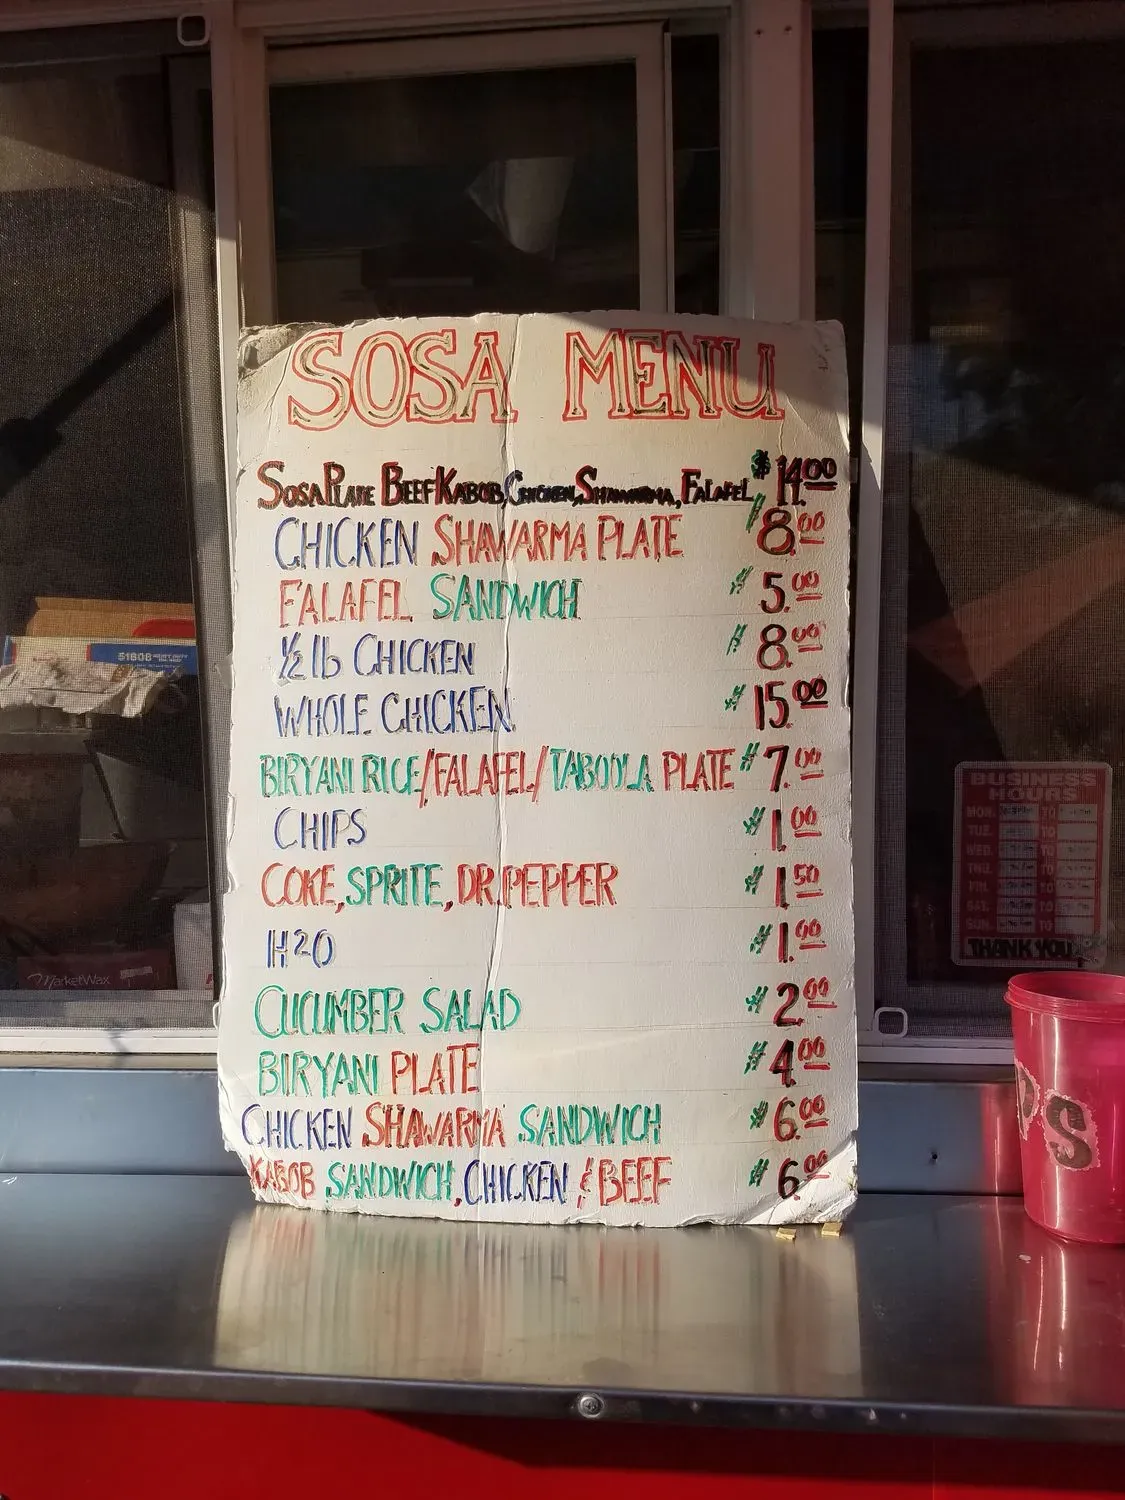 SOSA MENU
SOSA PLATE BEEF KABOB, CHICKEN, SHAWARMA, FALAFEL $ 14.00
CHICKEN SHAWARMA PLATE $ 8.00
FALAFEL SANDWICH $ 5.00
½ lb CHICKEN $ 8.00
WHOLE CHICKEN $ 15.00
BIRYANI RICE/FALAFEL/TABOULA PLATE $ 7.00
CHIPS $ 1.00
COKE, SPRITE, DR. PEPPER $ 1.50
H2O $ 1.00
CUCUMBER SALAD $ 2.00
BIRYANI PLATE $ 4.00
CHICKEN SHAWARMA SANDWICH $ 6.00
KABOB SANDWICH, CHICKEN & BEEF $ 6.00
51808 HEAVY DUTY
MarketWax
BUSINESS
HOURS
MON. TO
TUE. TO
WED. TO
THU. TO
FRI. TO
SAT. TO
SUN. TO
THANK YOU
PS